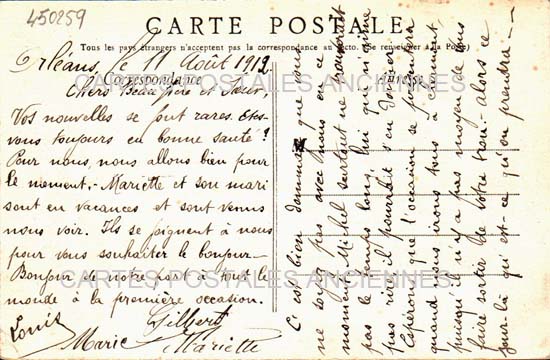 450259
CARTE POSTALE
Tous les pays étrangers n'acceptent pas la correspondance au recto. (Se renseigner à la Poste)
Correspondance
Adresse
CARTES POSTALES ANCIENNES
CARTES POSTALES ANCIENNES
Orléans, le 11 Août 1912
Chers Beau frère et Sœur,
Vos nouvelles se font rares. Etes-
vous toujours en bonne santé ?
Pour nous, nous allons bien pour
le moment. - Mariette et son mari
sont en vacances et sont venus
nous voir. Ils se joignent à nous
pour vous souhaiter le bonjour -
Bonjour de notre part à tout le
monde à la première occasion.
Louis
Gilbert
Marie
Mariette
C'est bien dommage que vous
ne soyez pas avec nous en ce
moment, Michel surtout ne trouverait
pas le temps long, lui qui n'aime
pas rire, il pourrait s'en donner
Espérons que l'occasion se présentera
quand nous irons tous à
puisqu'il n'y a pas moyen de vous
faire sortir de votre trou - alors ce
jour-là qu'est-ce qu'on prendra -